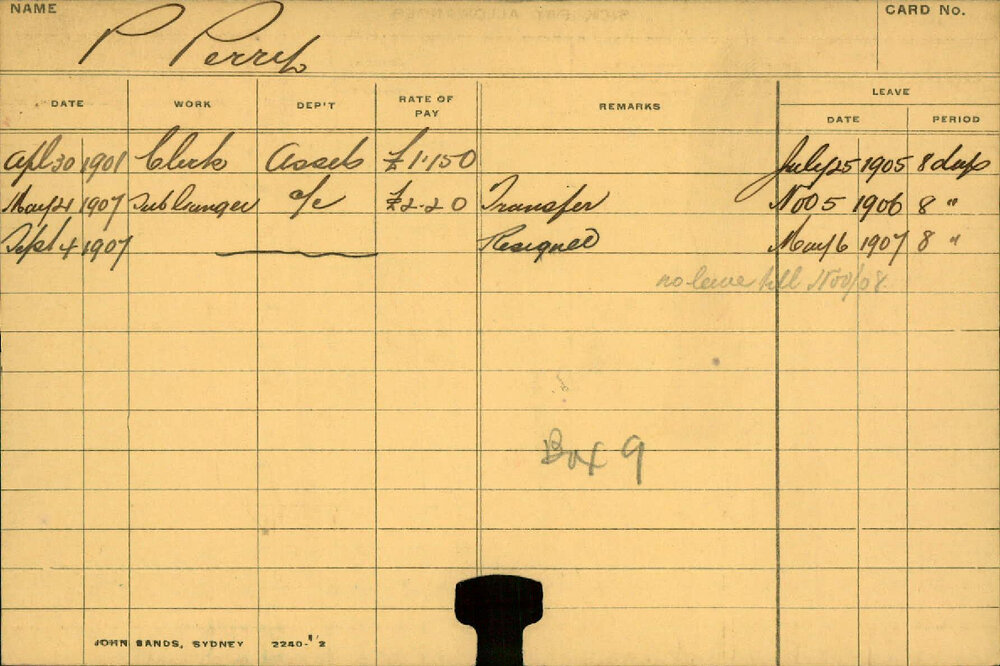 NAME
CARD No.
P Perry
DATE WORK DEP'T RATE OF PAY REMARKS LEAVE
DATE PERIOD
Apl 30 1901 Clerk Assets £1-15-0 July 25 1905 8 days
May 21 1907 c/c £2-2-0 Transfer Nov 5 1906 8 "
Sept 4 1907 Resigned May 6 1907 8 "
no leave till Nov/08
Box 9
JOHN SANDS, SYDNEY 2240-